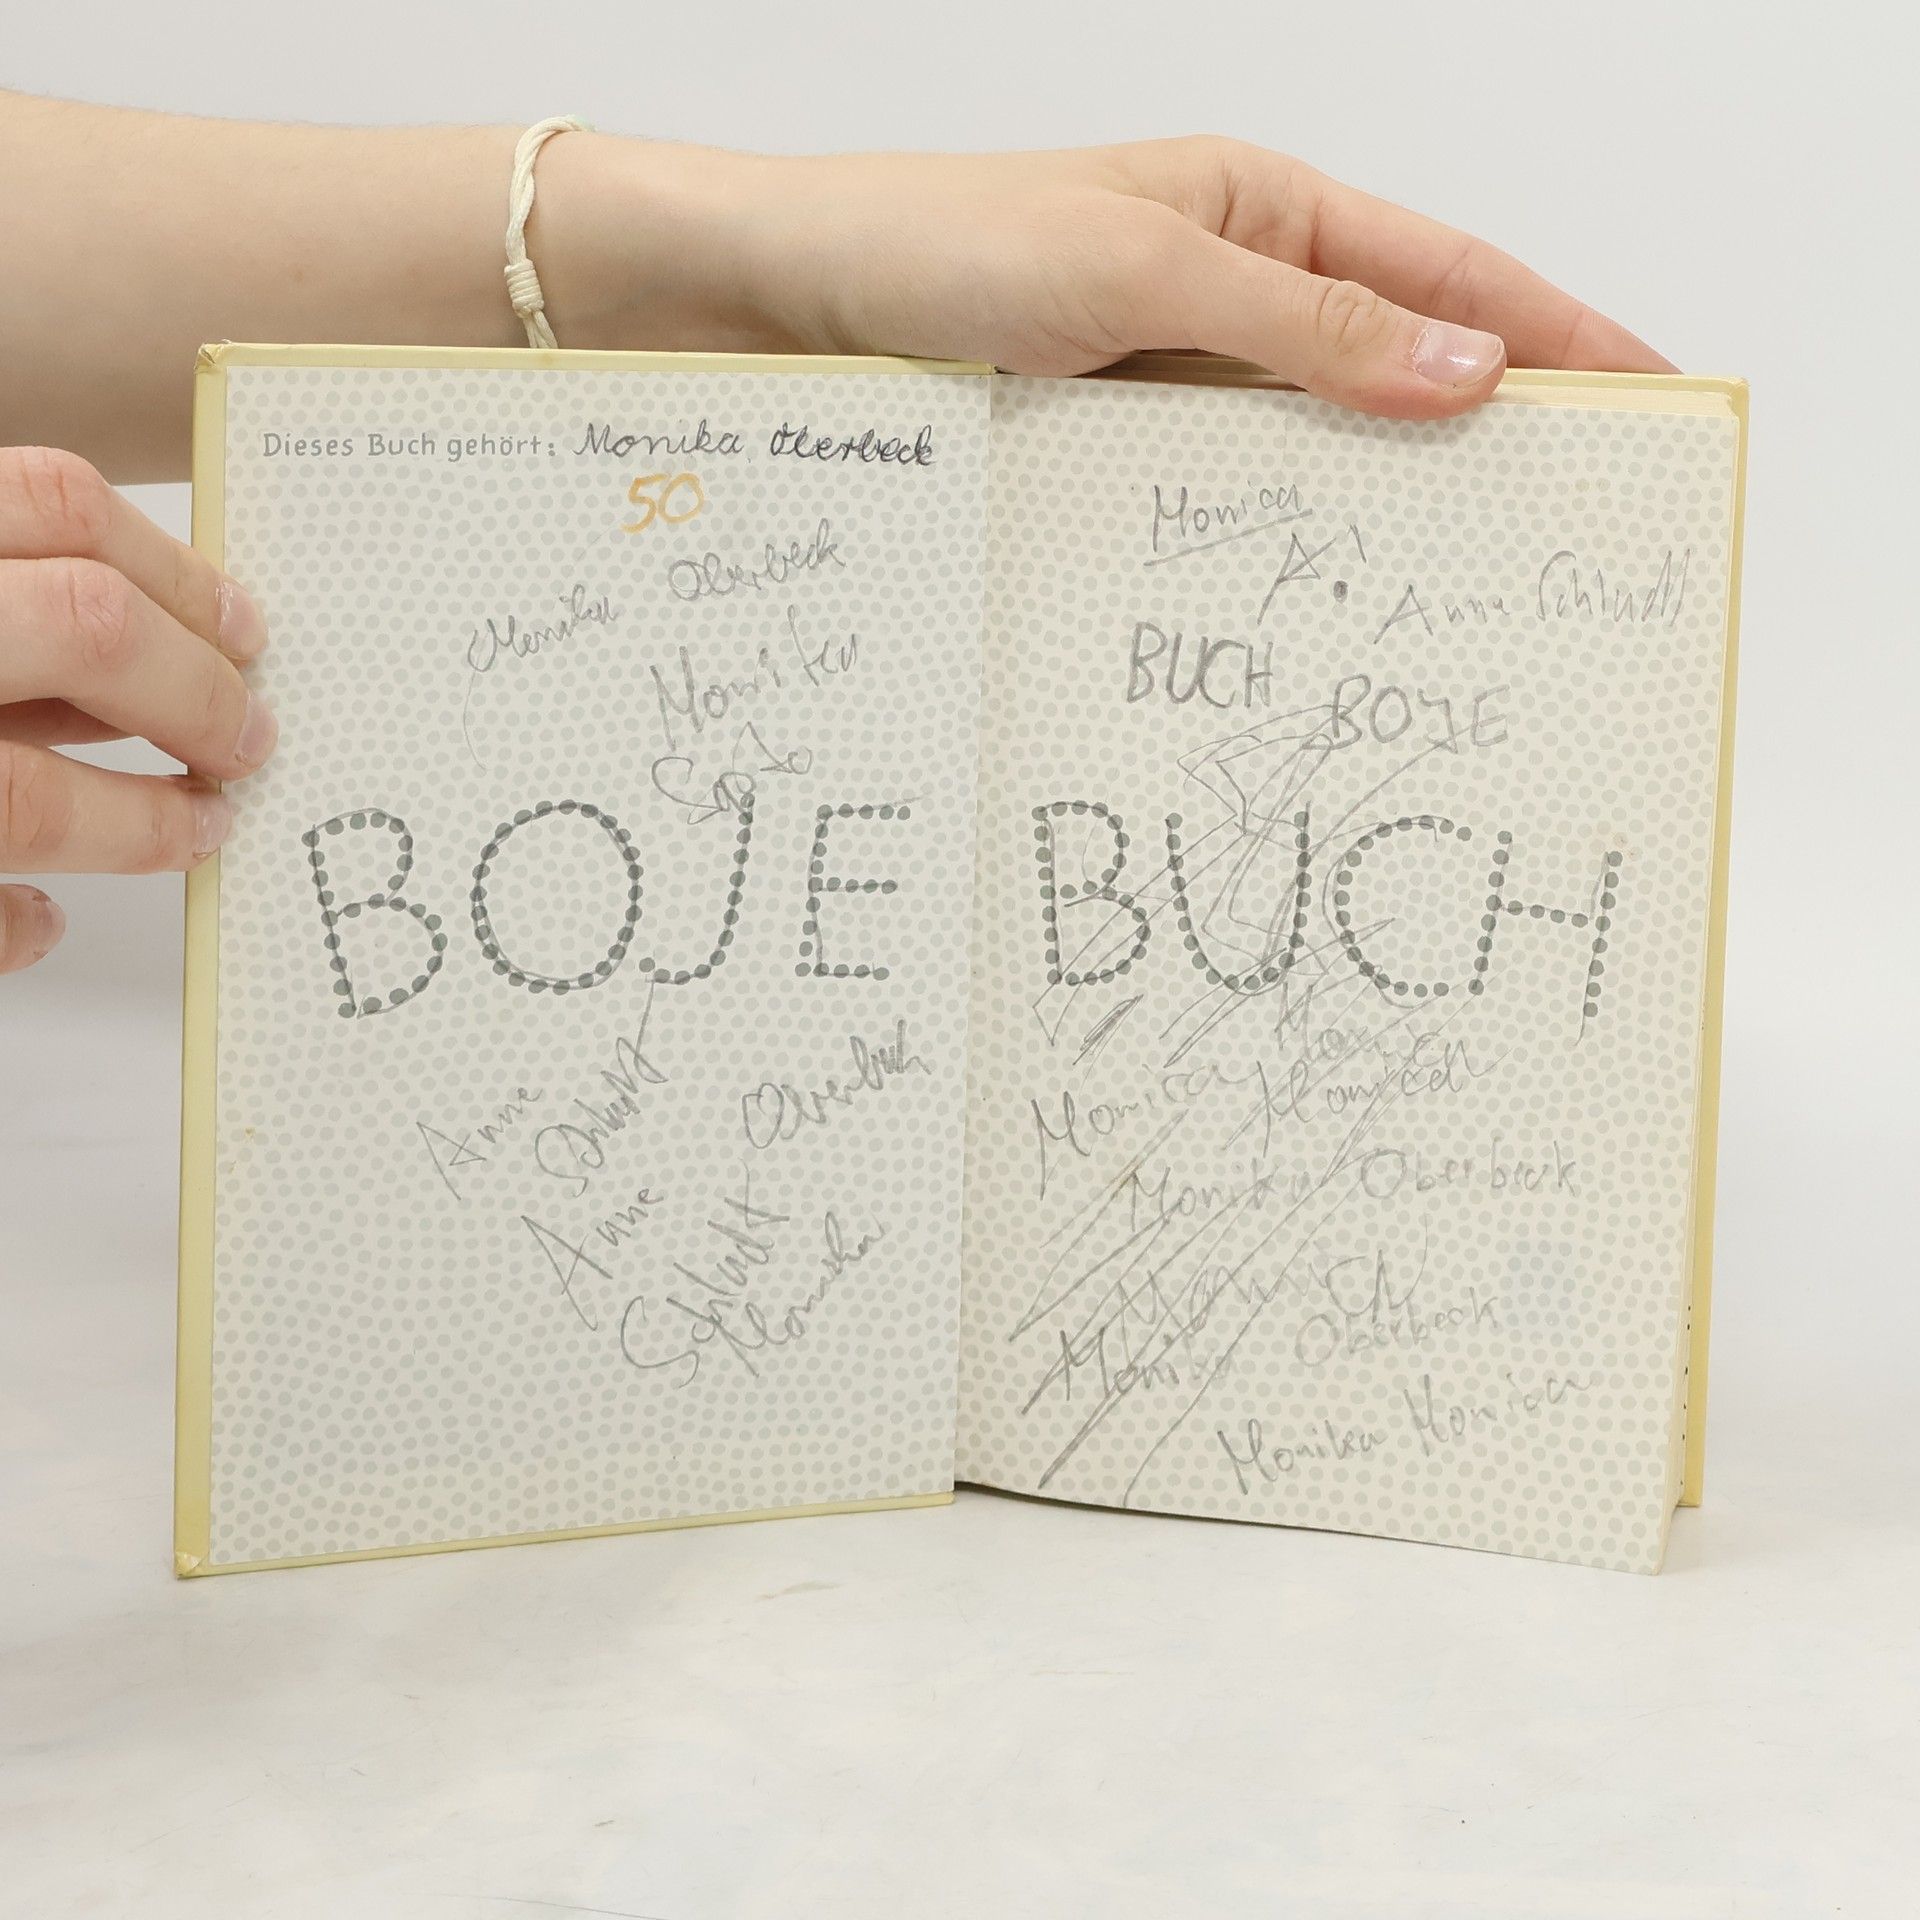 Dieses Buch gehört: Monika Oberbeck
50
Monika Oberbeck
Monika
BOJE
Anne
Oberbeck
Anne
Schludt
Monika
Monica
A!
Anne
BUCH BOJE
BUCH
Monica
Monica
Monika Oberbeck
Monica
Monika Oberbeck
Monika Monica